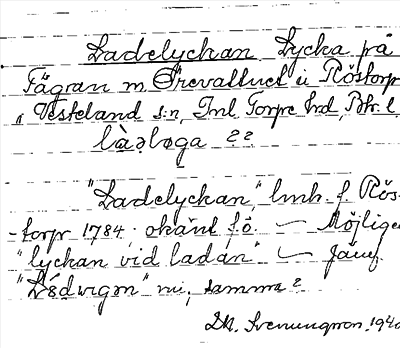 Ladelyckan Lycka på
Fägran m Örevalluet i Röstorp
Västeland s:n, Inl Torpe hrd, Bhl.
? ?
"Ladelyckan", lmh. f. Rös-
-torp 1784; okänt f. ö. — Möjligen
"lyckan vid ladan" — Jämf.
nu, samma?
D.A. Svenungsson. 194